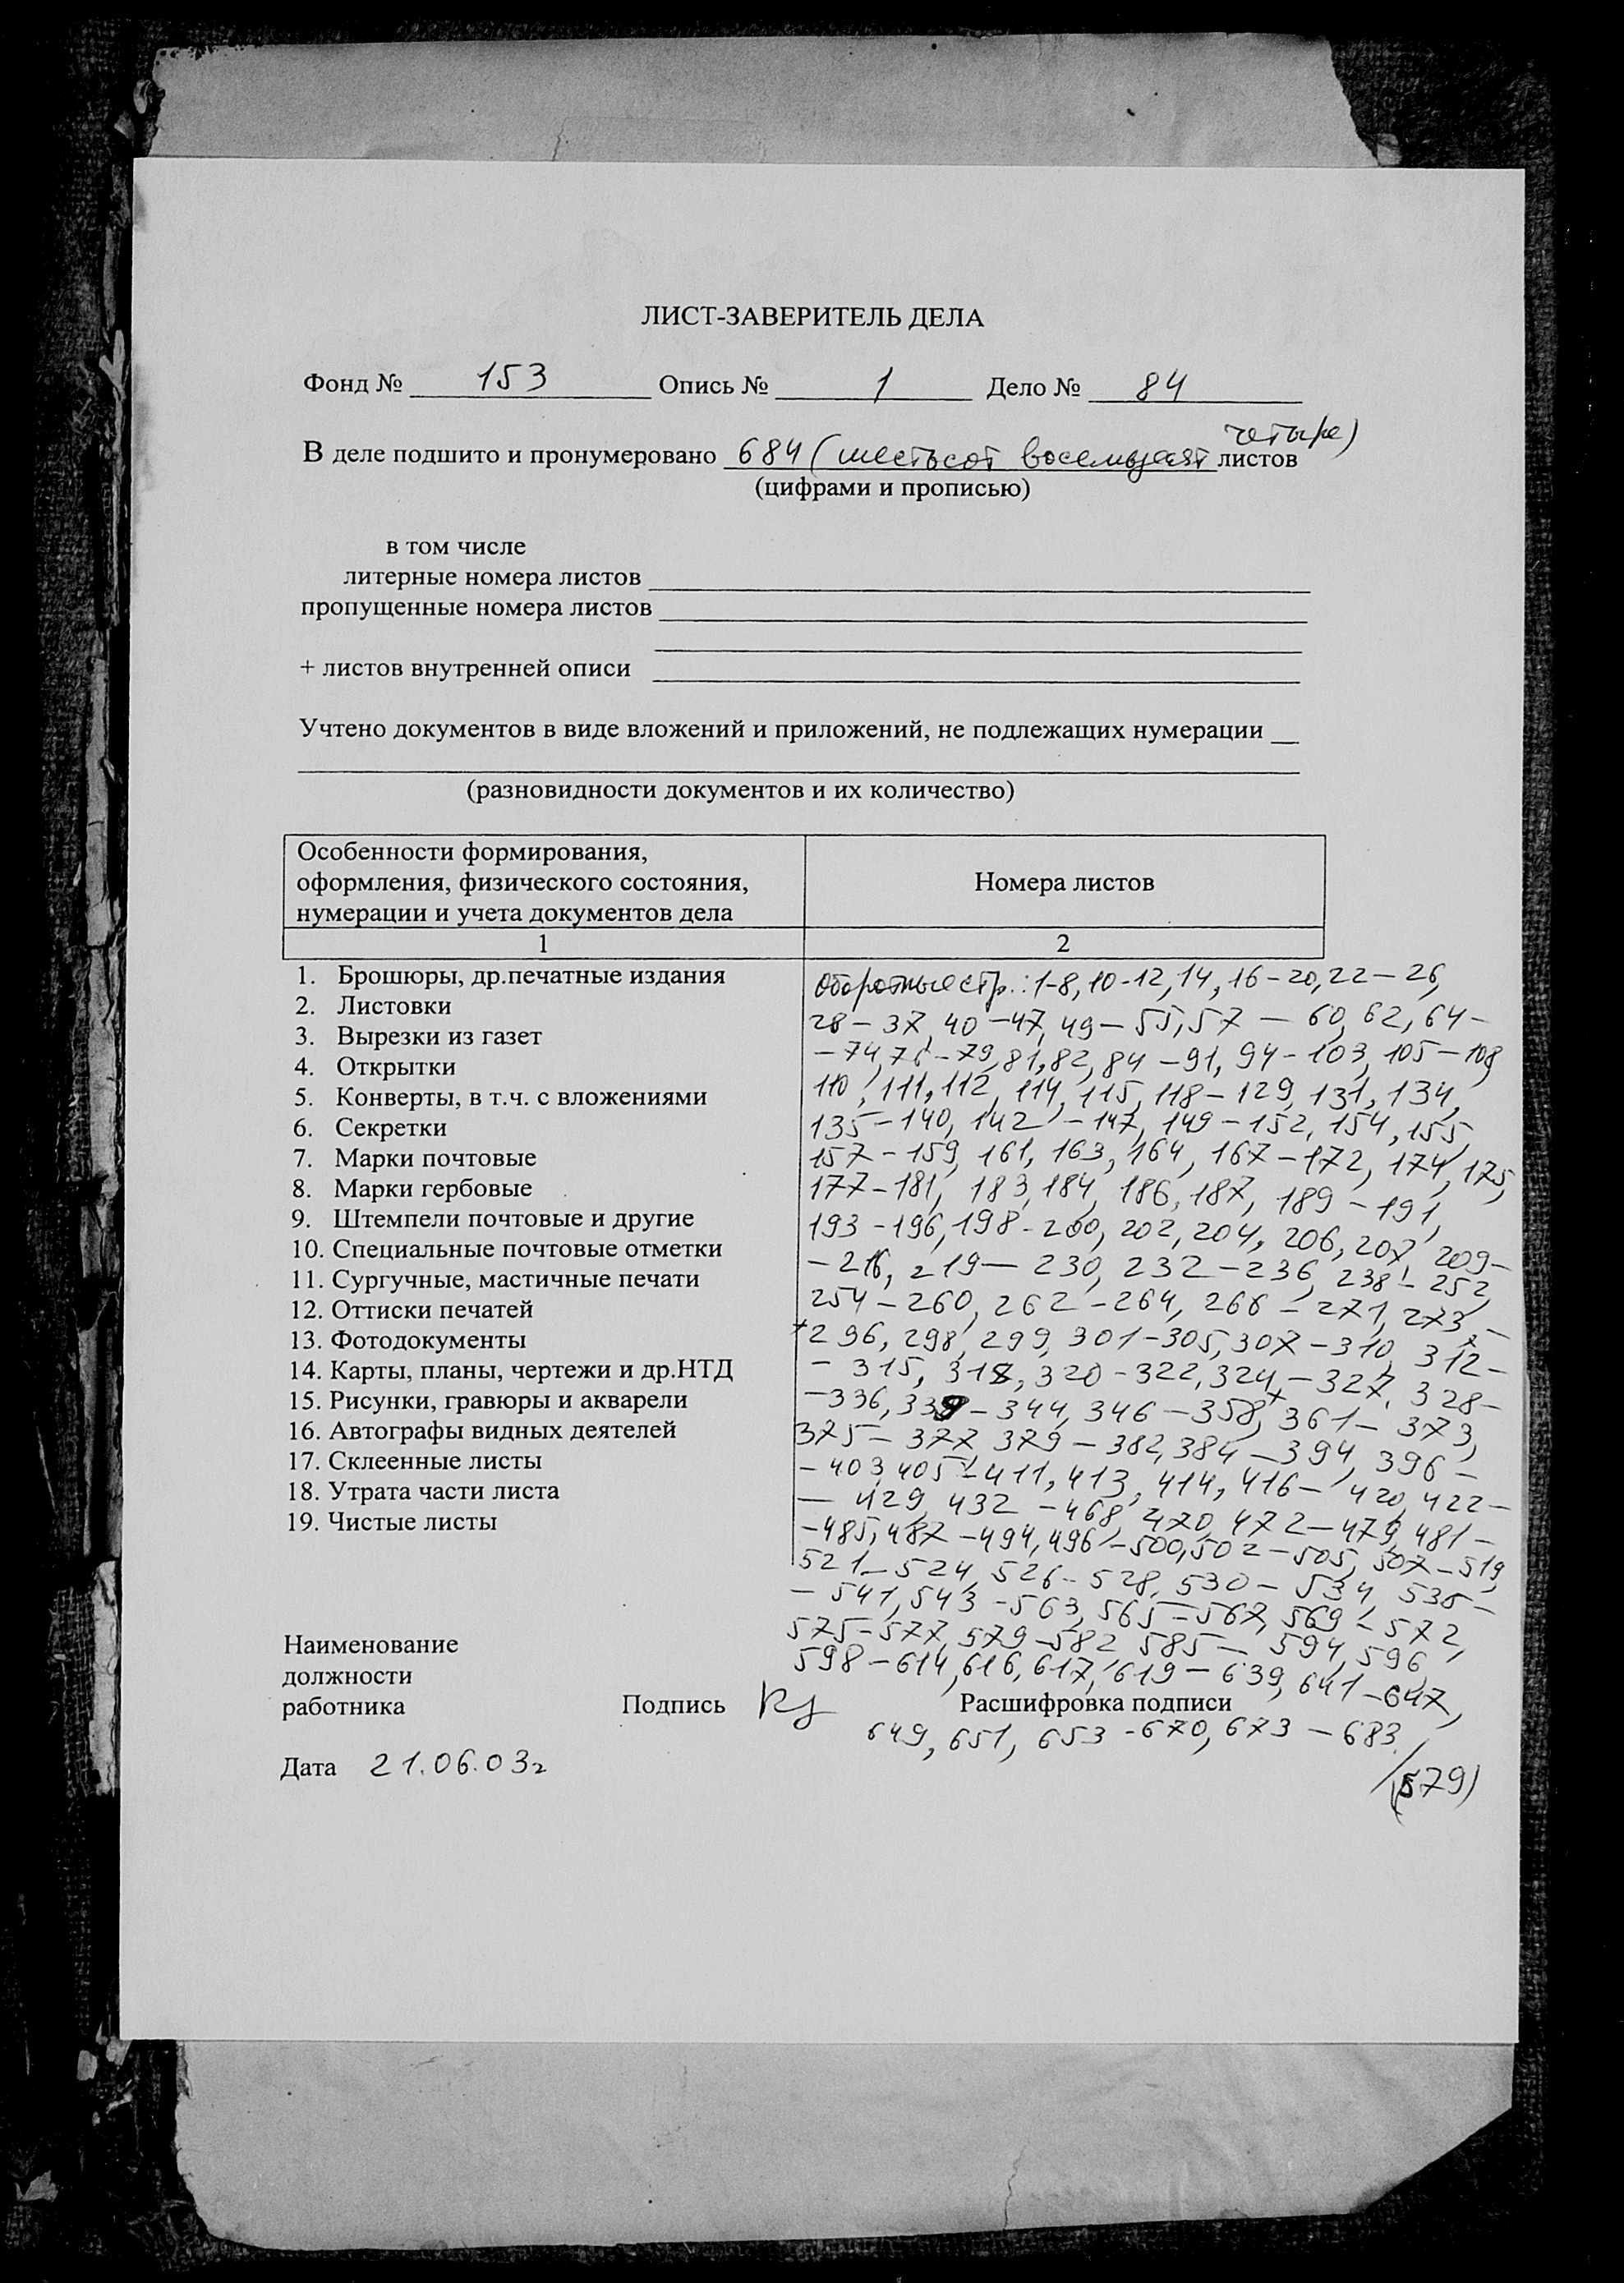 ЛИСТ-ЗАВЕРИТЕЛЬ ДЕЛА
Фонд № 153 Опись № 1 Дело № 84
четыре)
В деле подшито и пронумеровано 684 (шестьсот восемьдесят листов
(цифрами и прописью)
в том числе
литерные номера листов
пропущенные номера листов
+ листов внутренней описи
Учтено документов в виде вложений и приложений, не подлежащих нумерации
(разновидности документов и их количество)
Особенности формирования,
оформления, физического состояния,
нумерации и учета документов дела
Номера листов
1 2
1. Брошюры, др.печатные издания
2. Листовки
3. Вырезки из газет
4. Открытки
5. Конверты, в т.ч. с вложениями
6. Секретки
7. Марки почтовые
8. Марки гербовые
9. Штемпели почтовые и другие
10. Специальные почтовые отметки
11. Сургучные, мастичные печати
12. Оттиски печатей
13. Фотодокументы
14. Карты, планы, чертежи и др.НТД
15. Рисунки, гравюры и акварели
16. Автографы видных деятелей
17. Склеенные листы
18. Утрата части листа
19. Чистые листы
оборотные стр.: 1-8, 10-12, 14, 16-20, 22-26,
28-37, 40-47, 49-55, 57-60, 62, 64-
-74, 76-79, 81, 82, 84-91, 94-103, 105-108,
110, 111, 112, 114, 115, 118-129, 131, 134,
135-140, 142-147, 149-152, 154, 155,
157-159, 161, 163, 164, 167-172, 174, 175,
177-181, 183, 184, 186, 187, 189-191,
193-196, 198-200, 202, 204, 206, 207, 209-
-216, 219-230, 232-236, 238-252,
254-260, 262-264, 266-271, 273-
296, 298, 299, 301-305, 307-310, 312-
-315, 318, 320-322, 324-327, 328-
-336, 339-344, 346-358, 361-373,
375-377, 379-382, 384-394, 396-
-403, 405-411, 413, 414, 416-420, 422-
-429, 432-468, 470, 472-479, 481-
-485, 487-494, 496-500, 502-505, 507-519,
521-524, 526-528, 530-534, 536-
-541, 543-563, 565-567, 569-572,
575-577, 579-582, 585-594, 596,
598-614, 616, 617, 619-639, 641-647,
Наименование
должности
работника Подпись Расшифровка подписи
649, 651, 653-670, 673-683
Дата 21.06.03г
(579)